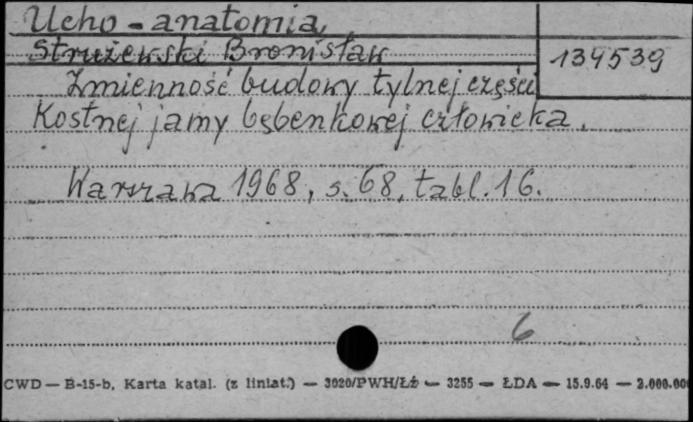 Ucho - anatomia
Strużewski Bronisław
134539
Zmienność budowy tylnej części
Kostnej jamy bębenkowej człowieka.
Warszawa 1968, s. 68, tabl. 16.
6
CWD — B-15-b, Karta katal. (z liniat.) — 3020/PWH/Łż — 3255 — ŁDA — 15.9.64 — 2.000.000